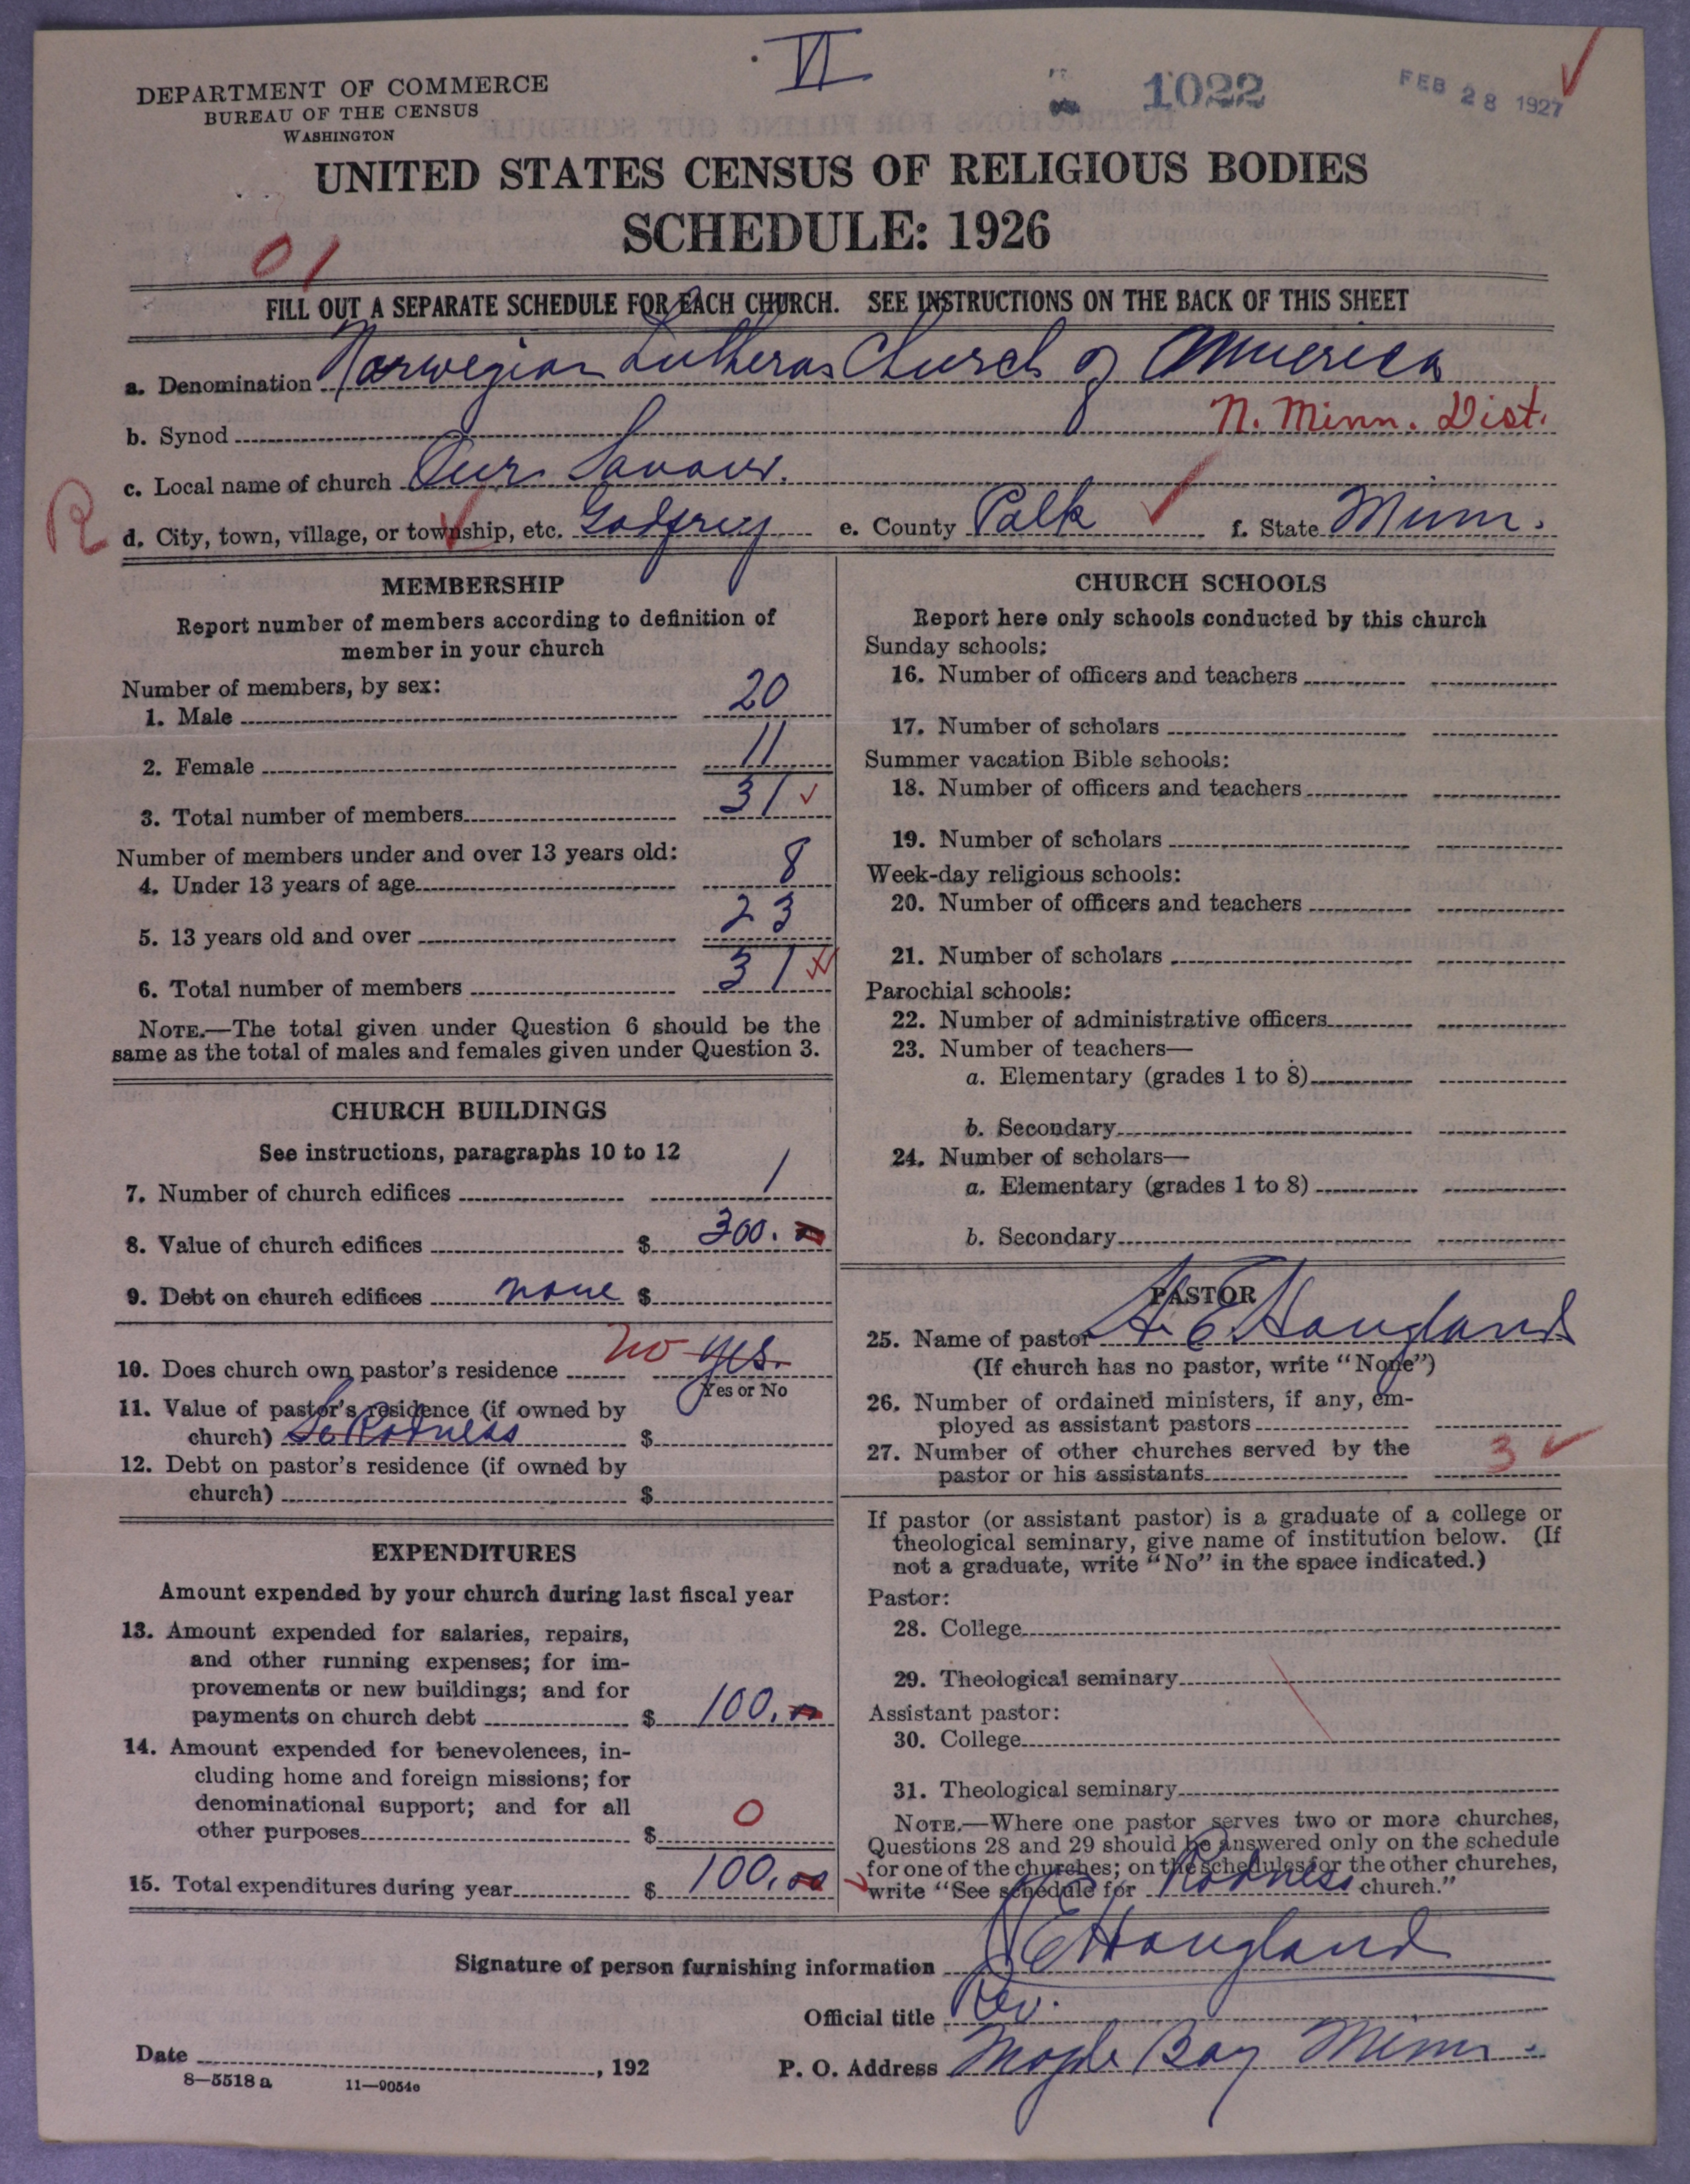 VI
1022
FEB 28 1927
DEPARTMENT OF COMMERCE
BUREAU OF THE CENSUS
WASHINGTON
UNITED STATES CENSUS OF RELIGIOUS BODIES
SCHEDULE: 1926
01
FILL OUT A SEPARATE SCHEDULE FOR EACH CHURCH. SEE INSTRUCTIONS ON THE BACK OF THIS SHEET
a. Denomination Norwegian Lutheran Church of America
b. Synod N. Minn. Dist.
c. Local name of church Our Saviour.
R
d. City, town, village, or township, etc. Godfrey e. County Polk f. State Minn.
MEMBERSHIP
Report number of members according to definition of
member in your church
Number of members, by sex:
1. Male 20
2. Female 11
3. Total number of members 31
Number of members under and over 13 years old:
4. Under 13 years of age 8
5. 13 years old and over 23
6. Total number of members 31
NOTE.—The total given under Question 6 should be the
same as the total of males and females given under Question 3.
CHURCH BUILDINGS
See instructions, paragraphs 10 to 12
7. Number of church edifices 1
8. Value of church edifices $ 300.
9. Debt on church edifices none $
10. Does church own pastor's residence no yes.
Yes or No
11. Value of pastor's residence (if owned by
church) Se Rodness $
12. Debt on pastor's residence (if owned by
church) $
EXPENDITURES
Amount expended by your church during last fiscal year
13. Amount expended for salaries, repairs,
and other running expenses; for im-
provements or new buildings; and for
payments on church debt $ 100.
14. Amount expended for benevolences, in-
cluding home and foreign missions; for
denominational support; and for all
other purposes $ 0
15. Total expenditures during year $ 100.00
CHURCH SCHOOLS
Report here only schools conducted by this church
Sunday schools:
16. Number of officers and teachers
17. Number of scholars
Summer vacation Bible schools:
18. Number of officers and teachers
19. Number of scholars
Week-day religious schools:
20. Number of officers and teachers
21. Number of scholars
Parochial schools:
22. Number of administrative officers
23. Number of teachers—
a. Elementary (grades 1 to 8)
b. Secondary
24. Number of scholars—
a. Elementary (grades 1 to 8)
b. Secondary
PASTOR
25. Name of pastor H. E. Hougland
(If church has no pastor, write "None")
26. Number of ordained ministers, if any, em-
ployed as assistant pastors
27. Number of other churches served by the
pastor or his assistants 3
If pastor (or assistant pastor) is a graduate of a college or
theological seminary, give name of institution below. (If
not a graduate, write "No" in the space indicated.)
Pastor:
28. College
29. Theological seminary
Assistant pastor:
30. College
31. Theological seminary
NOTE.—Where one pastor serves two or more churches,
Questions 28 and 29 should be answered only on the schedule
for one of the churches; on the schedules for the other churches,
write "See schedule for Rodness church."
Signature of person furnishing information H E Hougland
Official title Rev.
Date , 192
P. O. Address Maple Bay Minn.
8—5518 a 11—9054e